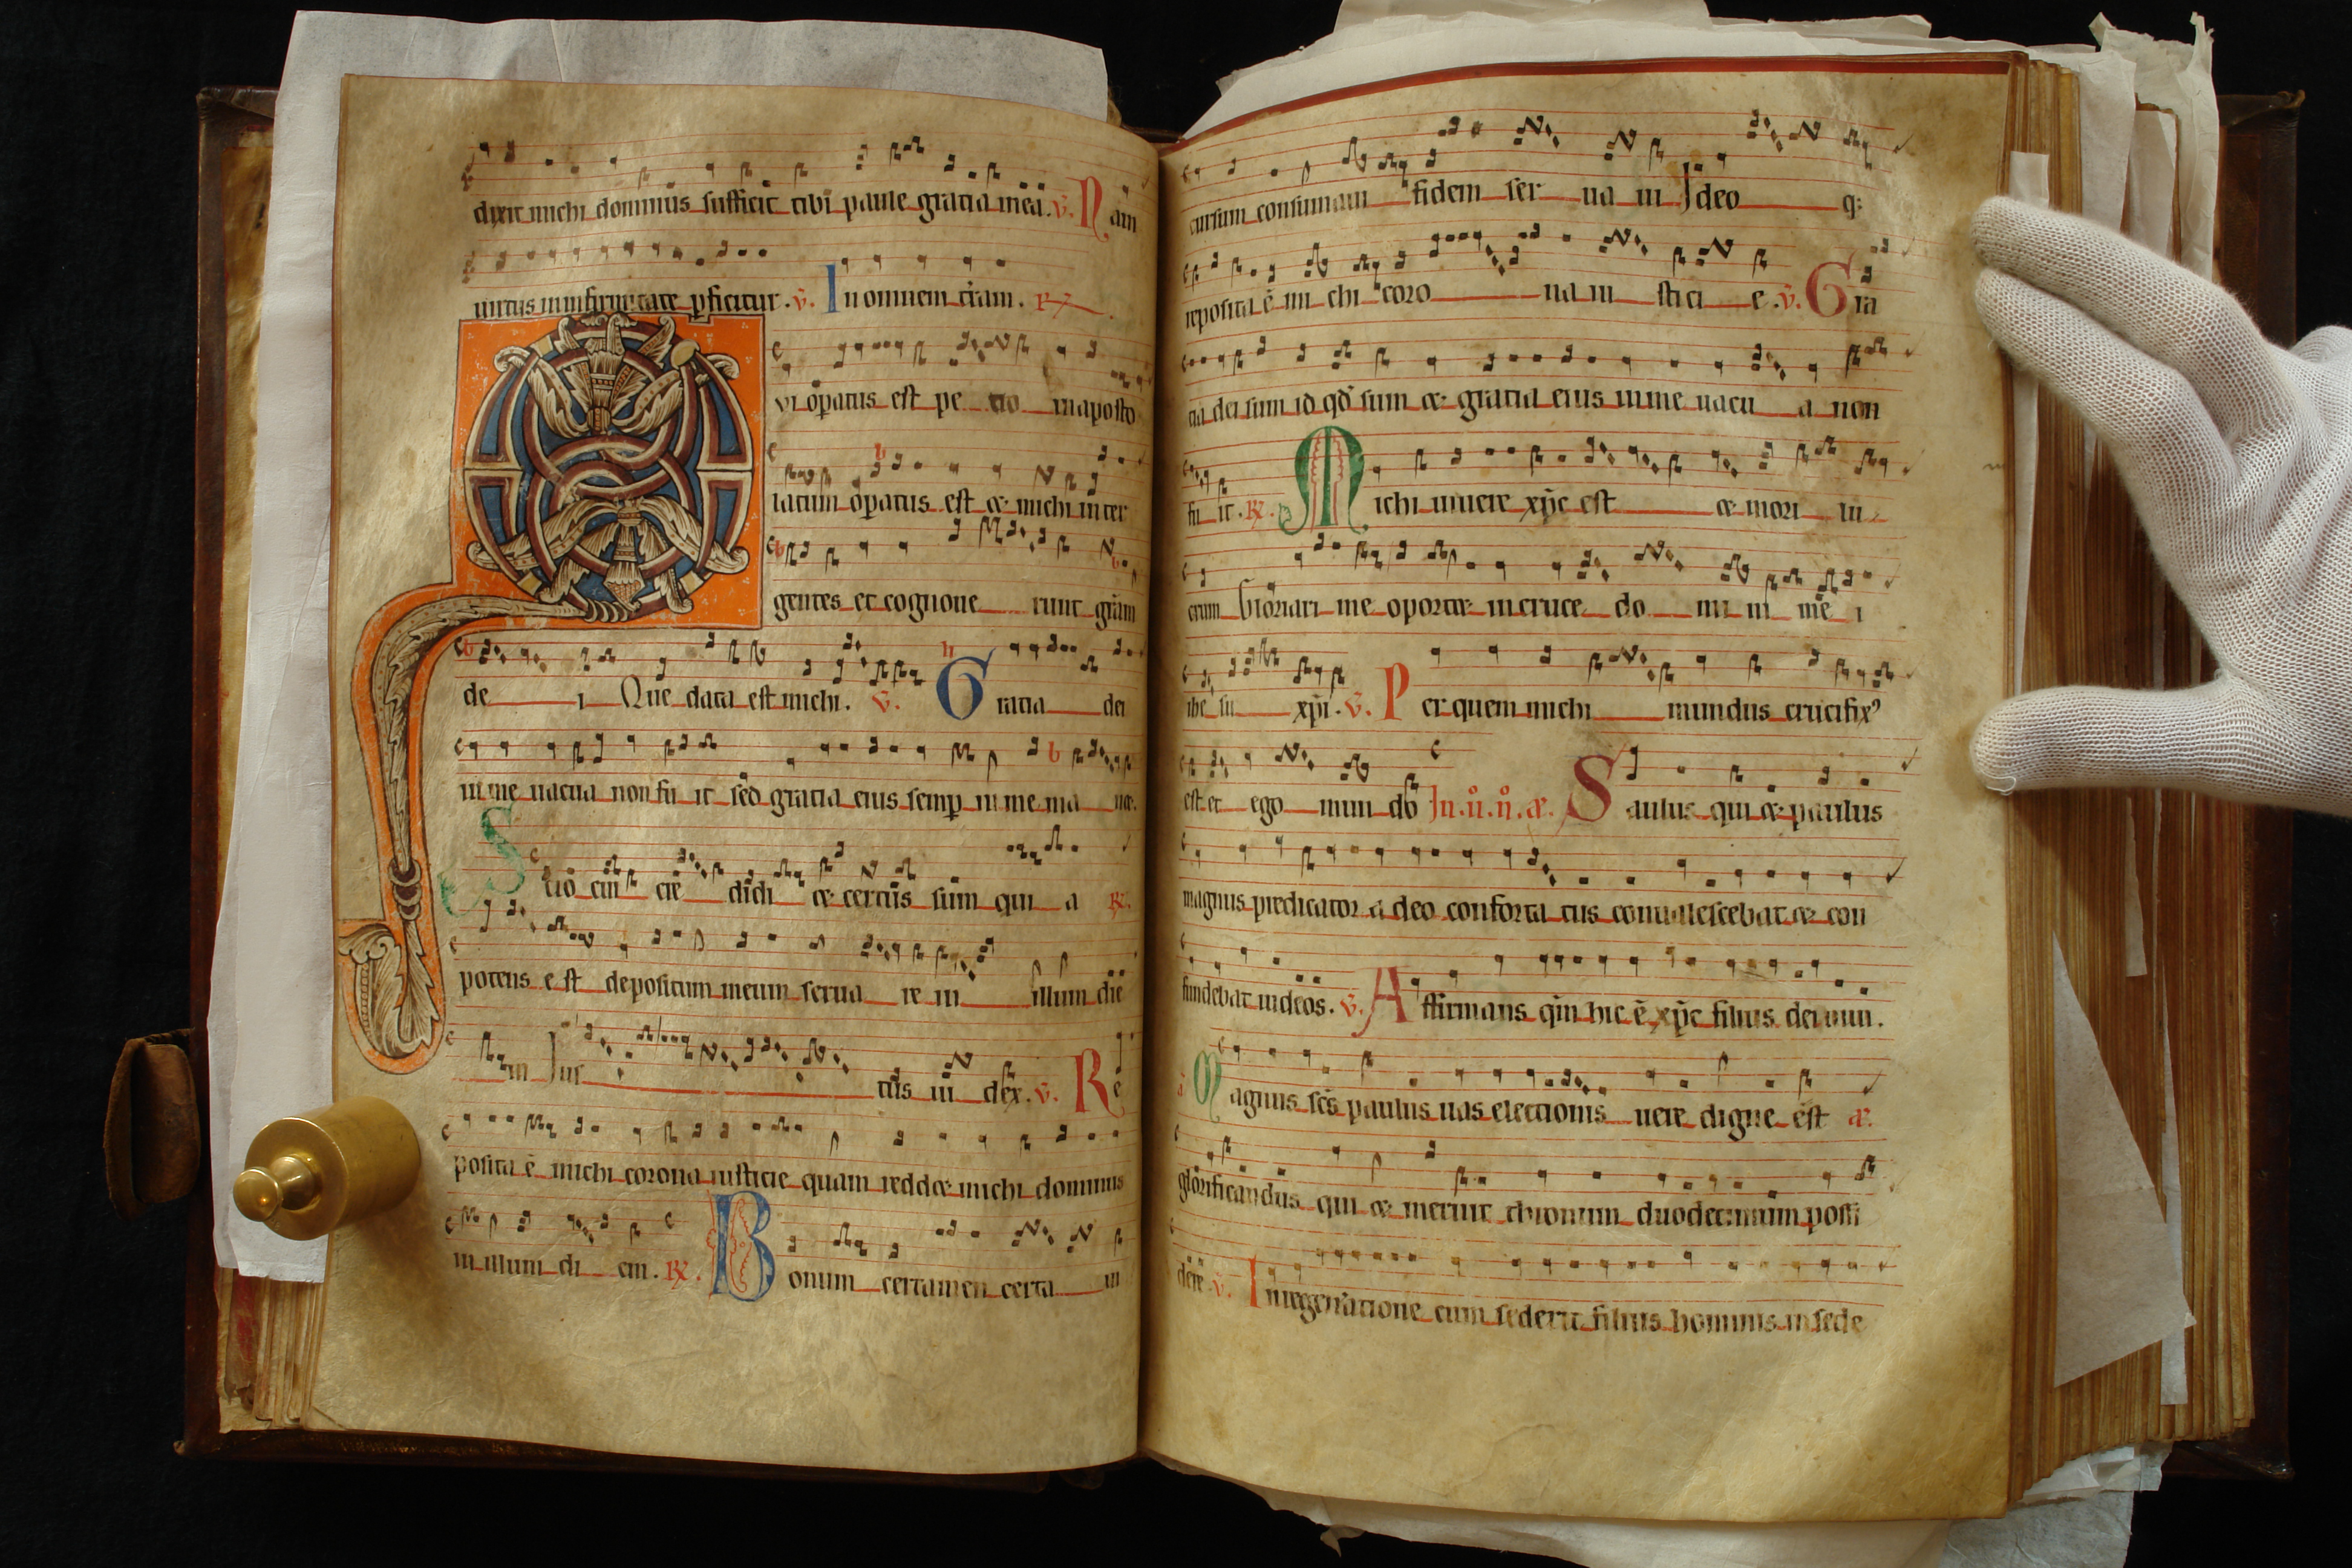 dixit michi dominus sufficit tibi paule gratia mea. v. Nam
uirtus in infirmitate ꝑficitur. v. In omnem t̄ram. R
Qui oꝑatus est pe tro in aposto
latum oꝑatus est et michi inter
gentes et cognoue runt grām
de i Que data est michi. v. Gratia dei
in me uacua non fu it sed gratia eius semꝑ in me ma net.
Scio cui cre didi et certus sum qui a R.
potens e st depositum meum serua re in illum die
m Jus tus iu dex. v. Re
posita ē michi corona iusticie quam reddet michi dominus
in illum di em. R. Bonum certamen certa ui
cursum consumaui fidem ser ua ui Jdeo q:
reposita ē mi chi coro na iu sti ci e. v. Gra
tia dei sum id qd̄ sum et gratia eius in me uacu a non
fu it. R. Michi uiuere xp̄c est et mori lu
crum Gloriari me oportet in cruce do mi ni me i
ihe su xp̄i. v. Per quem michi mundus crucifix᾿
est et ego mun do Jn. ů. ů. æ. Saulus qui et paulus
magnus predicator a deo conforta tus conualescebat et con
fundebat iudeos. v. Affirmans qm̄ hic ē xp̄c filius dei uiui.
Magnus scs̄ paulus uas electionis uere digne est æ.
glorificandus qui et meruit thronum duodecimum possi
dere. v. In regeneratione cum sederit filius hominis in sede